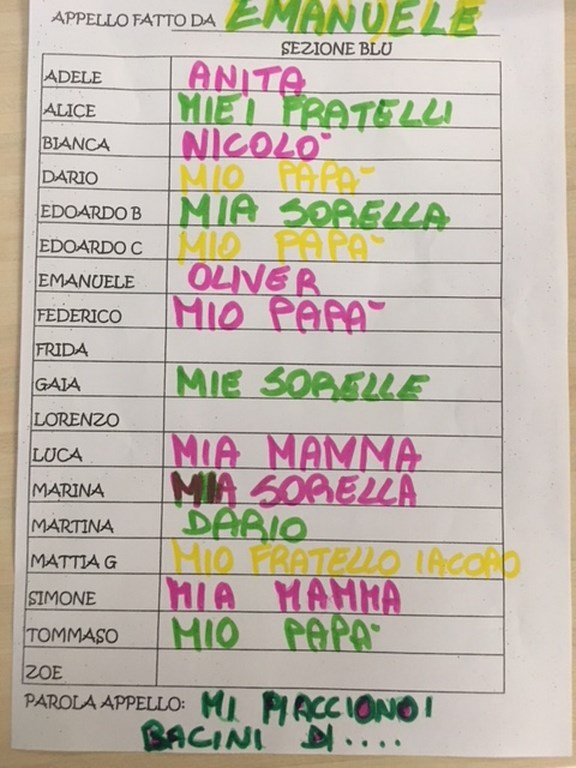 APPELLO FATTO DA EMANUELE
SEZIONE BLU
ADELE ANITA
ALICE MIEI FRATELLI
BIANCA NICOLO`
DARIO MIO PAPA`
EDOARDO B MIA SORELLA
EDOARDO C MIO PAPA`
EMANUELE OLIVER
FEDERICO MIO PAPA`
FRIDA
GAIA MIE SORELLE
LORENZO
LUCA MIA MAMMA
MARINA MIA SORELLA
MARTINA DARIO
MATTIA G MIO FRATELLO IACOPO
SIMONE MIA MAMMA
TOMMASO MIO PAPA`
ZOE
PAROLA APPELLO: MI PIACCIONO I
BACINI DI....